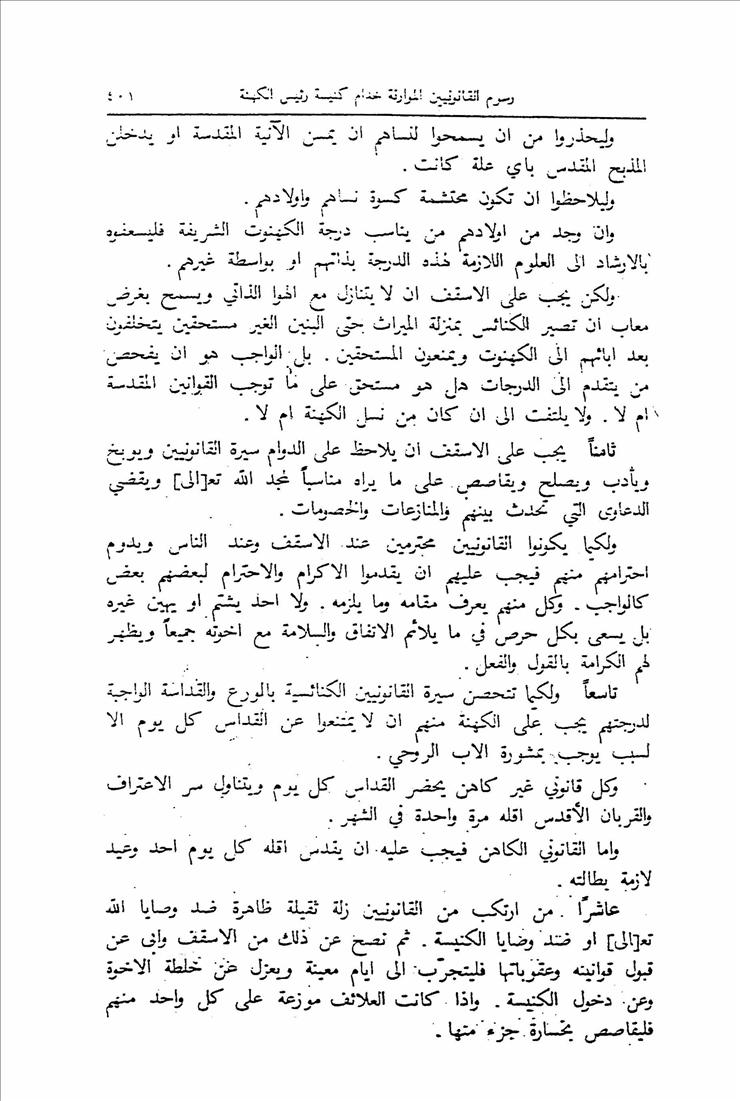 رسوم القانونيين الموارنة خدام كنيسة رئيس الكهنة ٤٠١
وليحذروا من ان يسمحوا لنساهم ان يمسن الآنية المقدسة او يدخلن
المذبح المقدس باي علة كانت .
وليلاحظوا ان تكون محتشمة كسوة نساهم واولادهم .
وان وجد من اولادهم من يناسب درجة الكهنوت الشريفة فليسعفوه
بالارشاد الى العلوم اللازمة لهذه الدرجة بذاتهم او بواسطة غيرهم .
ولكن يجب على الاسقف ان لا يتنازل مع الهوا الذاتي ويسمح بغرض
معاب ان تصير الكنائس بمنزلة الميراث حتى البنين الغير مستحقين يتخلفون
بعد ابائهم الى الكهنوت ويمنعون المستحقين . بل الواجب هو ان يفحص
من يتقدم الى الدرجات هل هو مستحق على ما توجب القوانين المقدسة
ام لا . ولا يلتفت الى ان كان من نسل الكهنة ام لا .
ثامناً يجب على الاسقف ان يلاحظ على الدوام سيرة القانونيين ويوبخ
ويأدب ويصلح ويقاصص على ما يراه مناسباً لمجد الله تع[الى] ويقضي
الدعاوى التي تحدث بينهم والمنازعات والخصومات .
ولكيما يكونوا القانونيين محترمين عند الاسقف وعند الناس ويدوم
احترامهم منهم فيجب عليهم ان يقدموا الاكرام والاحترام لبعضهم بعض
كالواجب . وكل منهم يعرف مقامه وما يلزمه . ولا احد يشتم او يهين غيره
بل يسعى بكل حرص في ما يلائم الاتفاق والسلامة مع اخوته جميعاً ويظهر
لهم الكرامة بالقول والفعل .
تاسعاً ولكيما تتحصن سيرة القانونيين الكنائسية بالورع والقداسة الواجبة
لدرجتهم يجب على الكهنة منهم ان لا يمتنعوا عن القداس كل يوم الا
لسبب يوجب بمشورة الاب الروحي .
وكل قانوني غير كاهن يحضر القداس كل يوم ويتناول سر الاعتراف
والقربان الأقدس اقله مرة واحدة في الشهر .
واما القانوني الكاهن فيجب عليه ان يقدس اقله كل يوم احد وعيد
لازمة بطالته .
عاشرًا . من ارتكب من القانونيين زلة ثقيلة ظاهرة ضد وصايا الله
تع[الى] او ضد وصايا الكنيسة . ثم نصح عن ذلك من الاسقف وابى عن
قبول قوانينه وعقوباتها فليتجرّب الى ايام معينة ويعزل عن خلطة الاخوة
وعن دخول الكنيسة . واذا كانت العلائف موزعة على كل واحد منهم
فليقاصص بخسارة جزء منها .